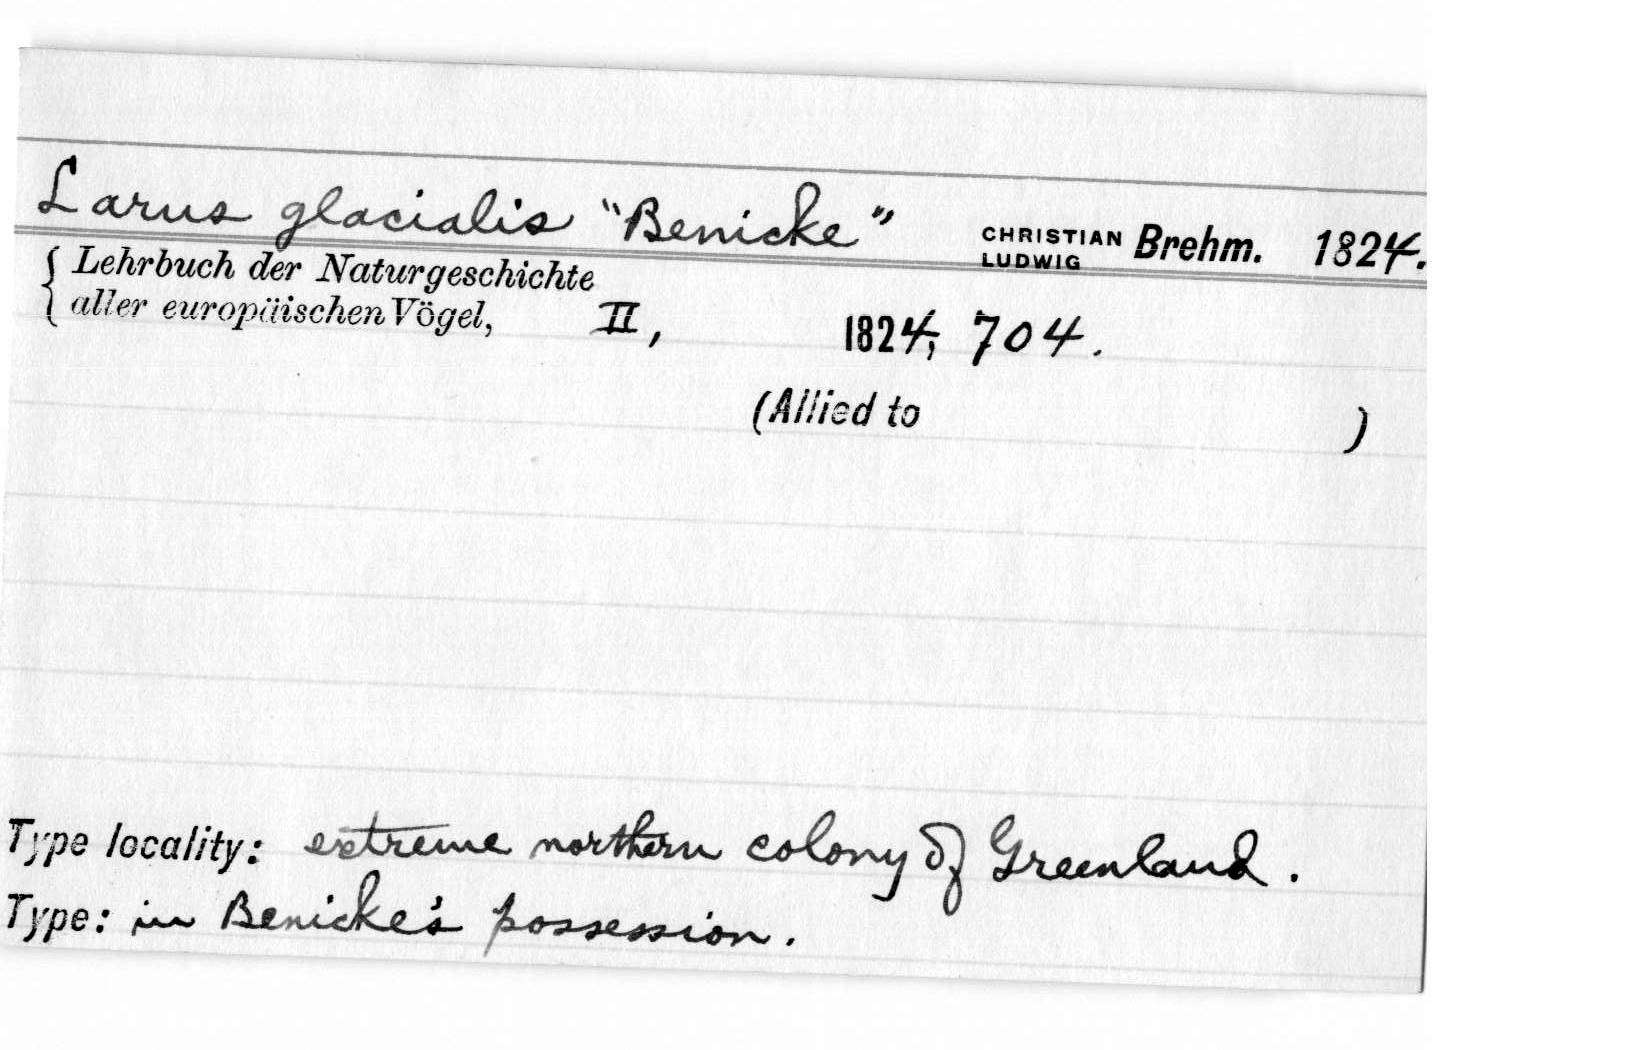 Larus glacialis "Benicke" CHRISTIAN LUDWIG Brehm. 1824.
Lehrbuch der Naturgeschichte
aller europäischen Vögel, II, 1824, 704.
(Allied to )
Type locality: extreme northern colony of Greenland.
Type: in Benicke's possession.